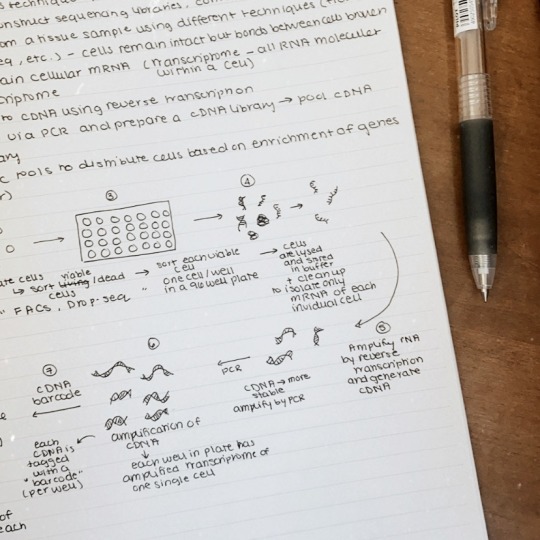 construct sequencing libraries, com
om a tissue sample using different techniques
eq, etc.) - cells remain intact but bonds between cells broken
ain cellular mRNA (transcriptome - all RNA molecules
within a cell)
criptome
to cDNA using reverse transcription
via PCR and prepare a cDNA library → pool cDNA
ary
c tools to distribute cells based on enrichment of genes
r)
③
④
ate cells
→ sort living/dead
viable
cells
" FACS, Drop-seq
→ sort each viable
cell
" one cell/well
in a 96 well plate
→ cells
are lysed
and stored
in buffer
+ clean up
to isolate only
mRNA of each
invidual cell
⑤
Amplify RNA
by reverse
transcription
and generate
cDNA
PCR
cDNA → more
stable
amplify by PCR
⑥
amplification of
cDNA
↓
each well in plate has
amplified transcriptome of
one single cell
⑦
cDNA
barcode
each
cDNA is
tagged
with a
"barcode"
(per well)
of
each